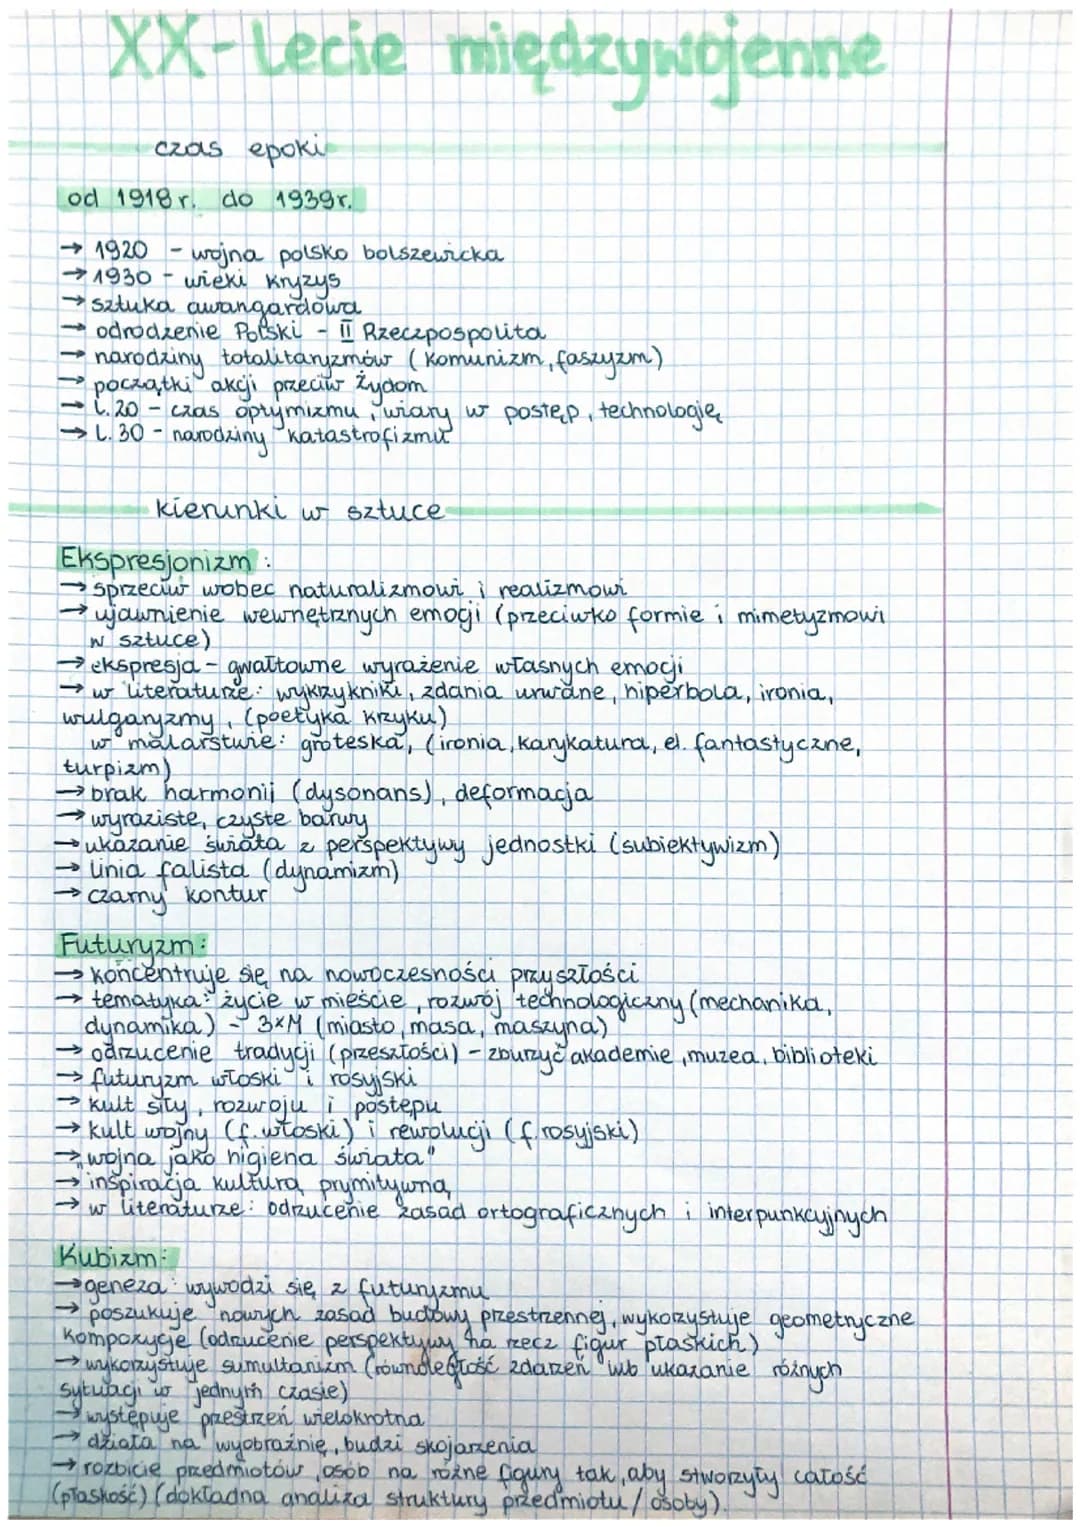 XX-lecie międzywojenne
czas epoki
od 1918r. do 1939r.
→ 1920 - wojna polsko bolszewicka
→ 1930 - wieki kryzys
→ sztuka awangardowa
→ odrodzenie Polski - II Rzeczpospolita
→ narodziny totalitaryzmów (komunizm, faszyzm)
→ początki akcji przeciw Żydom
→ l. 20 - czas optymizmu, wiary w postęp, technologię
→ l. 30 - narodziny katastrofizmu
kierunki w sztuce
Ekspresjonizm:
→ sprzeciw wobec naturalizmowi i realizmowi
→ ujawnienie wewnętrznych emocji (przeciwko formie i mimetyzmowi
w sztuce)
→ ekspresja - gwałtowne wyrażenie własnych emocji
→ w literaturze: wykrzykniki, zdania urwane, hiperbola, ironia,
wulgaryzmy, (poetyka krzyku)
w malarstwie: groteska, (ironia, karykatura, el. fantastyczne,
turpizm)
→ brak harmonii (dysonans), deformacja
→ wyraziste, czyste barwy
→ ukazanie świata z perspektywy jednostki (subiektywizm)
→ linia falista (dynamizm)
→ czarny kontur
Futuryzm:
→ koncentruje się na nowoczesności przyszłości
→ tematyka: życie w mieście, rozwój technologiczny (mechanika,
dynamika) - 3xM (miasto, masa, maszyna)
→ odrzucenie tradycji (przeszłości) - zburzyć akademie, muzea, biblioteki
→ futuryzm włoski i rosyjski
→ kult siły, rozwoju i postępu
→ kult wojny (f. włoski) i rewolucji (f. rosyjski)
→ „wojna jako higiena świata"
→ inspiracja kulturą prymitywną
→ w literaturze: odrzucenie zasad ortograficznych i interpunkcyjnych
Kubizm:
→ geneza: wywodzi się z futuryzmu
→ poszukuje nowych zasad budowy przestrzennej, wykorzystuje geometryczne
kompozycje (odrzucenie perspektywy na rzecz figur płaskich)
→ wykorzystuje sumultanizm (równoległość zdarzeń lub ukazanie różnych
sytuacji w jednym czasie)
→ występuje przestrzeń wielokrotna
→ działa na wyobraźnię, budzi skojarzenia
→ rozbicie przedmiotów, osób na różne figury tak, aby stworzyły całość
(płaskość) (dokładna analiza struktury przedmiotu / osoby).